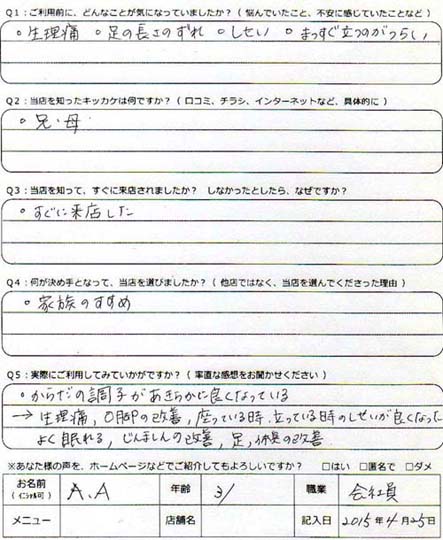 Q1：ご利用前に、どんなことが気になっていましたか？（ 悩んでいたこと、不安に感じていたことなど ）
◦生理痛 ◦足の長さのずれ ◦しせい ◦まっすぐ立つのがつらい
Q2：当店を知ったキッカケは何ですか？（ 口コミ、チラシ、インターネットなど、具体的に ）
◦兄・母
Q3：当店を知って、すぐに来店されましたか？ しなかったとしたら、なぜですか？
◦すぐに来店した
Q4：何が決め手となって、当店を選びましたか？（ 他店ではなく、当店を選んでくださった理由 ）
◦家族のすすめ
Q5：実際にご利用してみていかがですか？（ 率直な感想をお聞かせください ）
・からだの調子があきらかに良くなっている
→ 生理痛, O脚の改善, 座っている時, 立っている時のしせいが良くなった
よく眠れる, じんましんの改善, 足, 体臭の改善
※あなた様の声を、ホームページなどでご紹介してもよろしいですか？ □はい □匿名で □ダメ
お名前（イニシャル可） A.A 年齢 31 職業 会社員
メニュー 店舗名 記入日 2015年4月25日